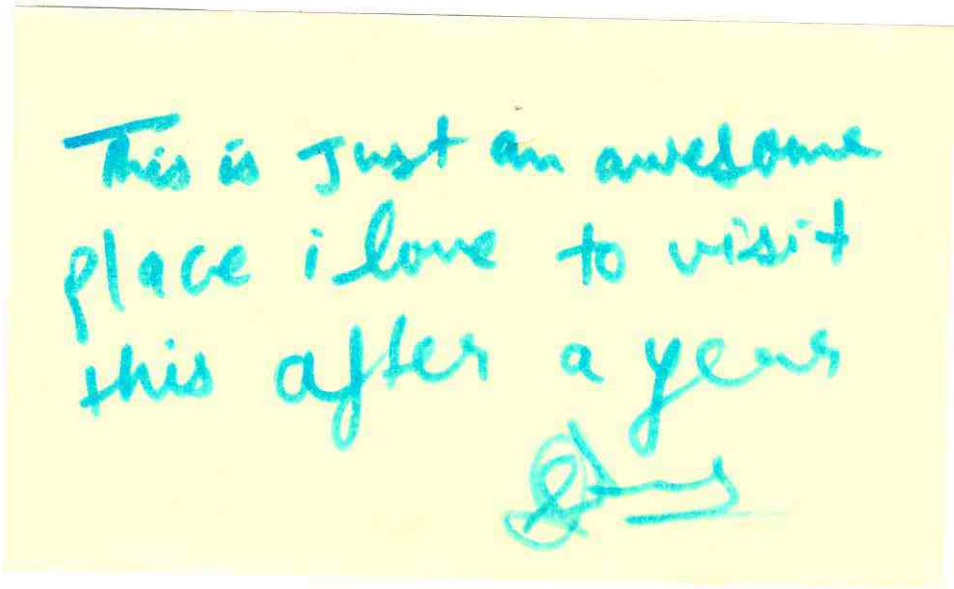 This is Just an awesome
place i love to visit
this after a year